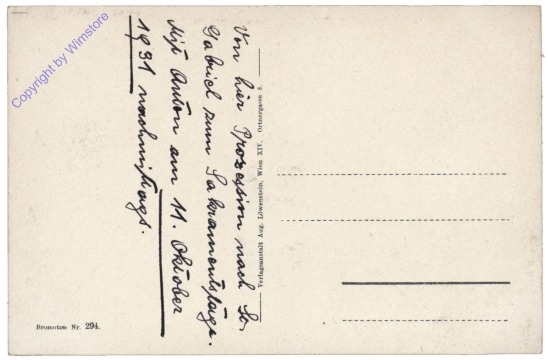 Von hier Prozession nach St.
Gabriel zum Sakramentstage.
Mit Anton am 11. Oktober
1931 nachmittags.
Verlagsanstalt Aug. Löwenstein, Wien XIV. Ortnergasse 3.
Bromoton Nr. 294.
Copyright by Wimstore